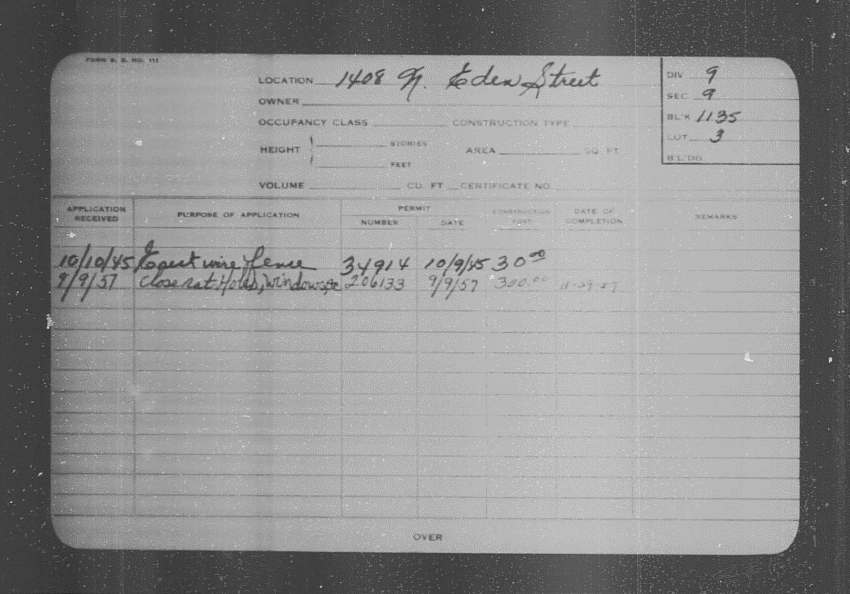 FORM B. E. NO. 111
LOCATION 1408 N. Eden Street
DIV 9
SEC 9
BL'K 1135
LOT 3
B'L'DG
OWNER
OCCUPANCY CLASS CONSTRUCTION TYPE
HEIGHT STORIES FEET AREA SQ. FT
VOLUME CU. FT CERTIFICATE NO.
APPLICATION RECEIVED PURPOSE OF APPLICATION PERMIT NUMBER DATE CONSTRUCTION COST DATE OF COMPLETION REMARKS
10/10/45 Erect wire fence 34914 10/9/45 30.00
9/9/57 Close rat Holes, windows, etc 206133 9/9/57 300.00 11-29-57
OVER